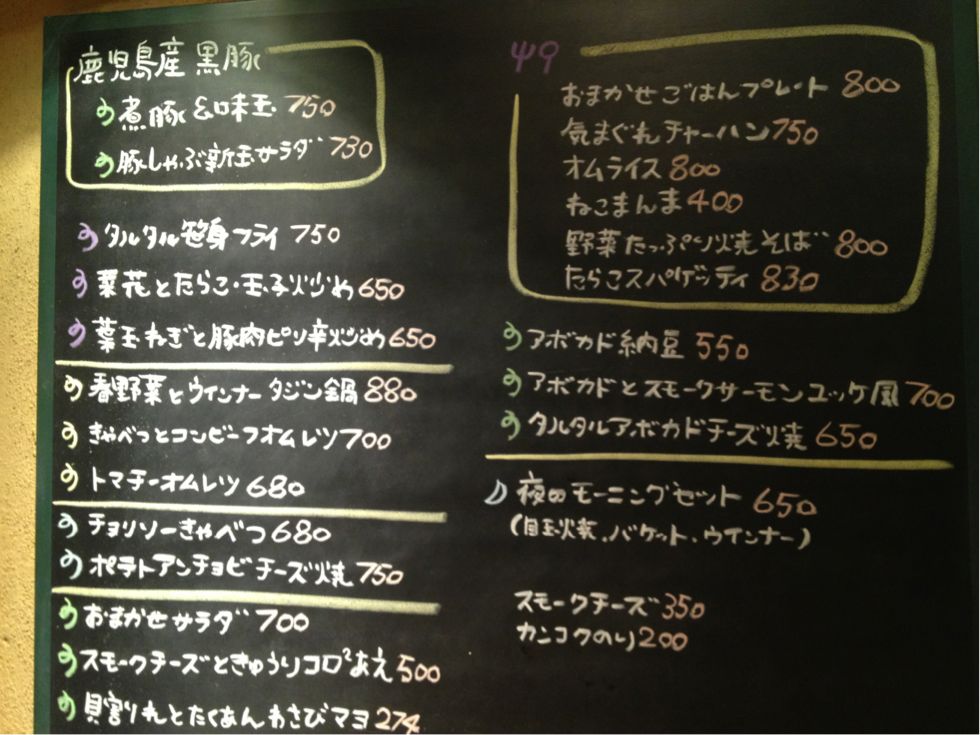 鹿児島産 黒豚
煮豚&味玉 750
豚しゃぶ新玉サラダ 730
タルタル笹身フライ 750
菜花とたらこ・玉子炒め 650
葉玉ねぎと豚肉ピリ辛炒め 650
春野菜とウインナータジン鍋 880
きゃべつとコンビーフオムレツ 700
トマチーオムレツ 680
チョリソーきゃべつ 680
ポテトアンチョビチーズ焼 750
おまかせサラダ 700
スモークチーズときゅうりコロ²あえ 500
貝割れとたくあんわさびマヨ 274
おまかせごはんプレート 800
気まぐれチャーハン 750
オムライス 800
ねこまんま 400
野菜たっぷり焼そば 800
たらこスパゲッティ 830
アボカド納豆 550
アボカドとスモークサーモンユッケ風 700
タルタルアボカドチーズ焼 650
夜のモーニングセット 650
(目玉焼、バケット、ウインナー)
スモークチーズ 350
カンコクのり 200